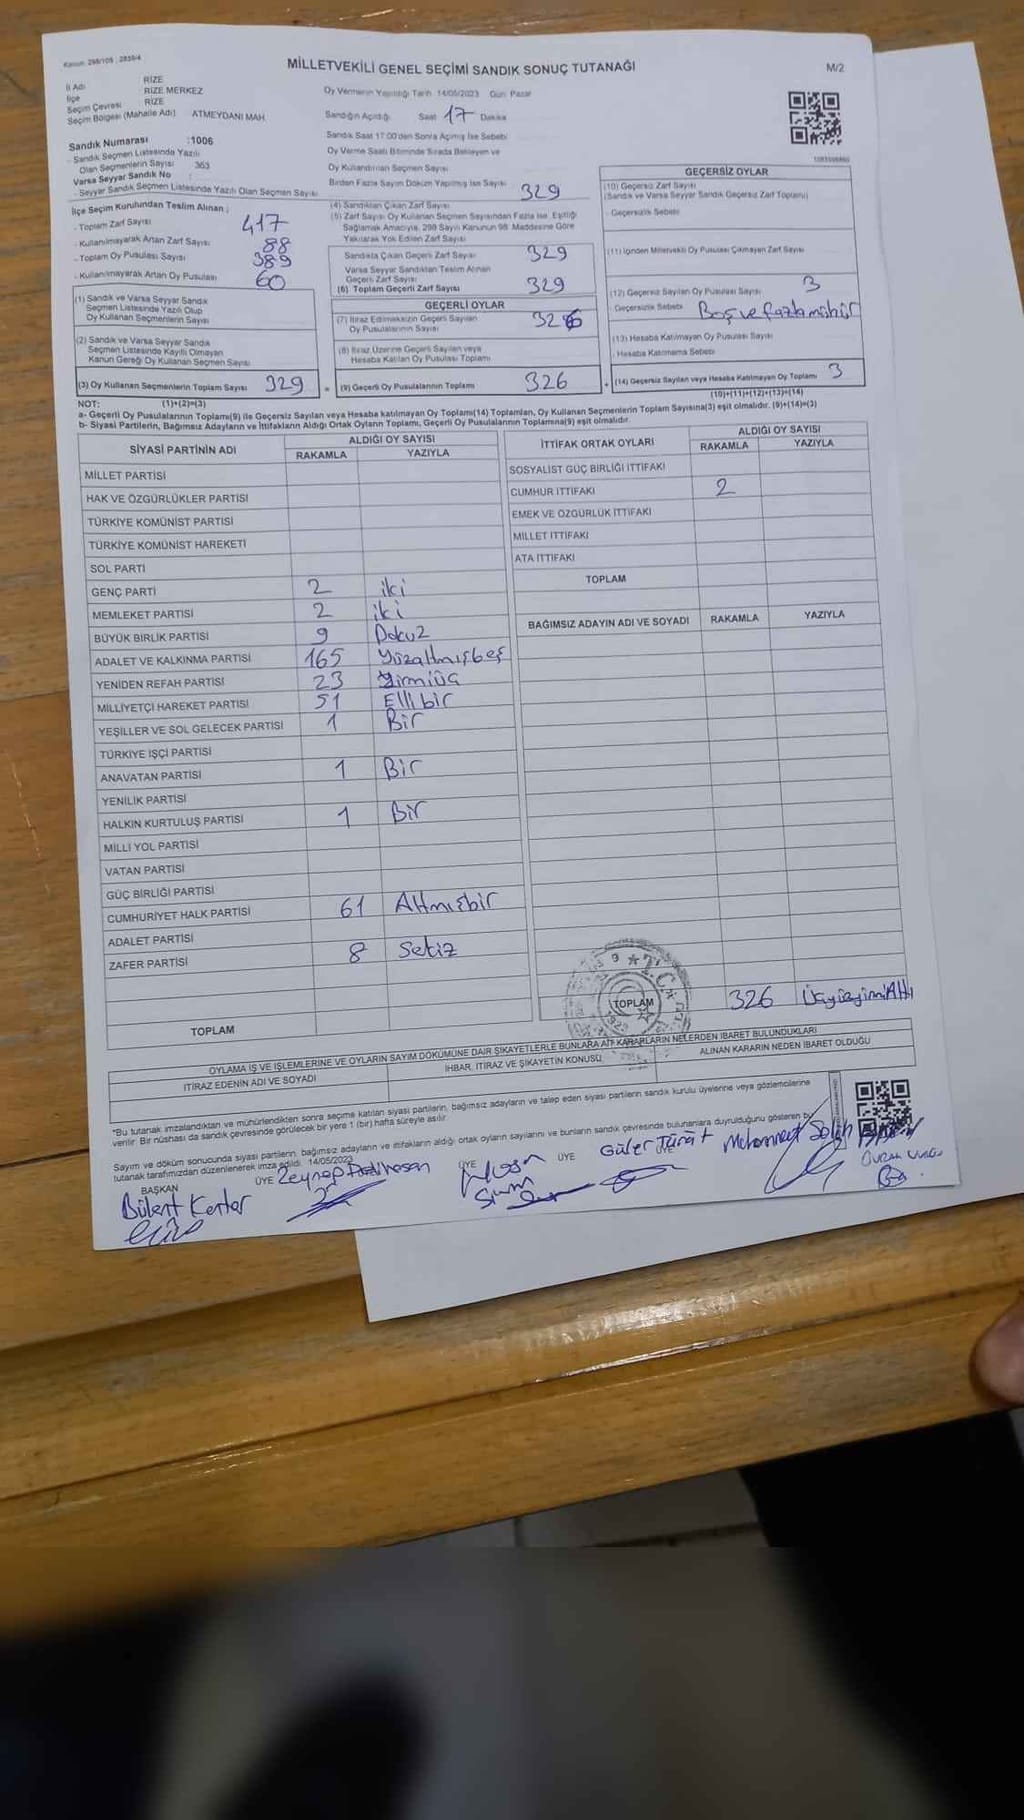 Kanun: 298/105 ; 2839/4
MİLLETVEKİLİ GENEL SEÇİMİ SANDIK SONUÇ TUTANAĞI
M/2
İl Adı RİZE
İlçe RİZE MERKEZ
Seçim Çevresi RİZE
Seçim Bölgesi (Mahalle Adı) ATMEYDANI MAH.
Sandık Numarası :1006
- Sandık Seçmen Listesinde Yazılı
Olan Seçmenlerin Sayısı 363
Varsa Seyyar Sandık No :
- Seyyar Sandık Seçmen Listesinde Yazılı Olan Seçmen Sayısı
İlçe Seçim Kurulundan Teslim Alınan ;
- Toplam Zarf Sayısı 417
- Kullanılmayarak Artan Zarf Sayısı 88
- Toplam Oy Pusulası Sayısı 389
- Kullanılmayarak Artan Oy Pusulası 60
(1) Sandık ve Varsa Seyyar Sandık
Seçmen Listesinde Yazılı Olup
Oy Kullanan Seçmenlerin Sayısı
(2) Sandık ve Varsa Seyyar Sandık
Seçmen Listesinde Kayıtlı Olmayan
Kanun Gereği Oy Kullanan Seçmen Sayısı
(3) Oy Kullanan Seçmenlerin Toplam Sayısı 329
Oy Vermenin Yapıldığı Tarih 14/05/2023 Gün: Pazar
Sandığın Açıldığı Saat 17 Dakika
Sandık Saat 17:00'den Sonra Açılmış İse Sebebi
Oy Verme Saati Bitiminde Sırada Bekleyen ve
Oy Kullandırılan Seçmen Sayısı
Birden Fazla Sayım Döküm Yapılmış İse Sayısı
(4) Sandıktan Çıkan Zarf Sayısı 329
(5) Zarf Sayısı Oy Kullanan Seçmen Sayısından Fazla İse, Eşitliği
Sağlamak Amacıyla, 298 Sayılı Kanunun 98. Maddesine Göre
Yakılarak Yok Edilen Zarf Sayısı
Sandıkta Çıkan Geçerli Zarf Sayısı 329
Varsa Seyyar Sandıktan Teslim Alınan
Geçerli Zarf Sayısı
(6) Toplam Geçerli Zarf Sayısı 329
GEÇERLİ OYLAR
(7) İtiraz Edilmeksizin Geçerli Sayılan
Oy Pusulalarının Sayısı 326
(8) İtiraz Üzerine Geçerli Sayılan veya
Hesaba Katılan Oy Pusulası Toplamı
= (9) Geçerli Oy Pusulalarının Toplamı 326
GEÇERSİZ OYLAR
(10) Geçersiz Zarf Sayısı
(Sandık ve Varsa Seyyar Sandık Geçersiz Zarf Toplamı)
- Geçersizlik Sebebi
(11) İçinden Milletvekili Oy Pusulası Çıkmayan Zarf Sayısı
(12) Geçersiz Sayılan Oy Pusulası Sayısı 3
Geçersizlik Sebebi Boş ve fazla mühür
(13) Hesaba Katılmayan Oy Pusulası Sayısı
- Hesaba Katılmama Sebebi
+ (14) Geçersiz Sayılan veya Hesaba Katılmayan Oy Toplamı 3
NOT: (1)+(2)=(3)
(10)+(11)+(12)+(13)=(14)
a- Geçerli Oy Pusulalarının Toplamı(9) ile Geçersiz Sayılan veya Hesaba katılmayan Oy Toplamı(14) Toplamları, Oy Kullanan Seçmenlerin Toplam Sayısına(3) eşit olmalıdır. (9)+(14)=(3)
b- Siyasi Partilerin, Bağımsız Adayların ve İttifakların Aldığı Ortak Oyların Toplamı, Geçerli Oy Pusulalarının Toplamına(9) eşit olmalıdır.
SİYASİ PARTİNİN ADI ALDIĞI OY SAYISI
RAKAMLA YAZIYLA
MİLLET PARTİSİ
HAK VE ÖZGÜRLÜKLER PARTİSİ
TÜRKİYE KOMÜNİST PARTİSİ
TÜRKİYE KOMÜNİST HAREKETİ
SOL PARTİ
GENÇ PARTİ 2 iki
MEMLEKET PARTİSİ 2 iki
BÜYÜK BİRLİK PARTİSİ 9 Dokuz
ADALET VE KALKINMA PARTİSİ 165 Yüzaltmışbeş
YENİDEN REFAH PARTİSİ 23 Yirmiüç
MİLLİYETÇİ HAREKET PARTİSİ 51 Ellibir
YEŞİLLER VE SOL GELECEK PARTİSİ 1 Bir
TÜRKİYE İŞÇİ PARTİSİ
ANAVATAN PARTİSİ 1 Bir
YENİLİK PARTİSİ
HALKIN KURTULUŞ PARTİSİ 1 Bir
MİLLİ YOL PARTİSİ
VATAN PARTİSİ
GÜÇ BİRLİĞİ PARTİSİ
CUMHURİYET HALK PARTİSİ 61 Altmışbir
ADALET PARTİSİ
ZAFER PARTİSİ 8 Sekiz
TOPLAM
İTTİFAK ORTAK OYLARI ALDIĞI OY SAYISI
RAKAMLA YAZIYLA
SOSYALİST GÜÇ BİRLİĞİ İTTİFAKI
CUMHUR İTTİFAKI 2
EMEK VE ÖZGÜRLÜK İTTİFAKI
MİLLET İTTİFAKI
ATA İTTİFAKI
TOPLAM
BAĞIMSIZ ADAYIN ADI VE SOYADI RAKAMLA YAZIYLA
T.C.
TOPLAM 326 Üçyüzyirmialtı
OYLAMA İŞ VE İŞLEMLERİNE VE OYLARIN SAYIM DÖKÜMÜNE DAİR ŞİKAYETLERLE BUNLARA AİT KARARLARIN NELERDEN İBARET BULUNDUKLARI
İTİRAZ EDENİN ADI VE SOYADI İHBAR, İTİRAZ VE ŞİKAYETİN KONUSU ALINAN KARARIN NEDEN İBARET OLDUĞU
*Bu tutanak imzalandıktan ve mühürlendikten sonra seçime katılan siyasi partilerin, bağımsız adayların ve talep eden siyasi partilerin sandık kurulu üyelerine veya gözlemcilerine
verilir. Bir nüshası da sandık çevresinde görülecek bir yere 1 (bir) hafta süreyle asılır.
Sayım ve döküm sonucunda siyasi partilerin, bağımsız adayların ve ittifakların aldığı ortak oyların sayılarını ve bunların sandık çevresinde bulunanlara duyrulduğunu gösteren bu
tutanak tarafımızdan düzenlenerek imza edildi. 14/05/2023
BAŞKAN ÜYE ÜYE ÜYE ÜYE
Bülent Kertar
Zeynep
Güler Turat
Muhammed Salih